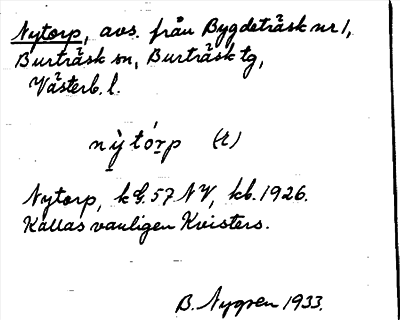 Nytorp, avs. från Bygdeträsk nr 1,
Burträsk sn, Burträsk tg,
Västerb. l.
nỳtórp (t)
Nytorp, k G. 57 NV, kb. 1926.
Kallas vanligen Kvisters.
B. Nygren 1933.